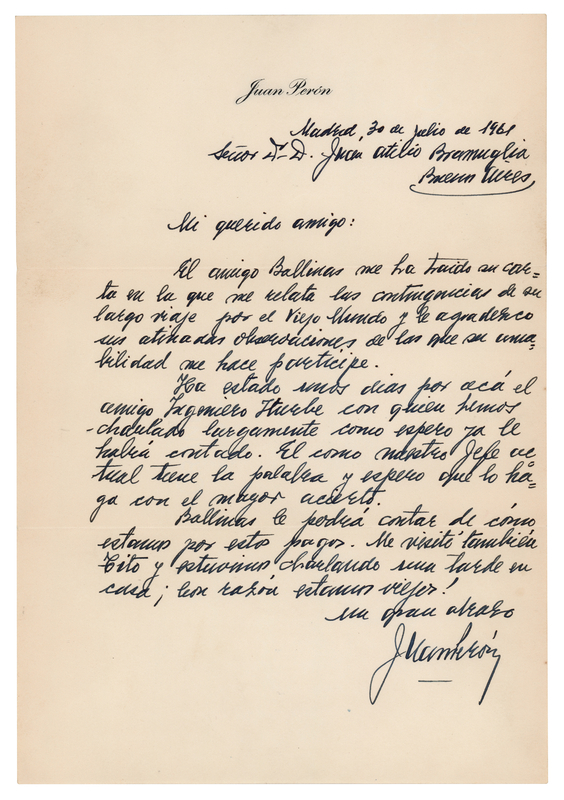 Juan Perón
Madrid, 30 de julio de 1961
Señor Dr. D. Juan Atilio Bramuglia
Buenos Aires
Mi querido amigo:
El amigo Ballinas me ha traido su car=
ta en la que me relata las contingencias de su
largo viaje por el Viejo Mundo y le agradezco
sus atinadas observaciones de las que su ama=
bilidad me hace partícipe.
Ha estado unos dias por acá el
amigo Ingeniero Iturbe con quien hemos
charlado largamente como espero ya le
habrá contado. El como nuestro Jefe ac=
tual tiene la palabra y espero que lo ha=
ga con el mayor acierto.
Ballinas le podrá contar de cómo
estamos por estos pagos. Me visitó también
Tito y estuvimos charlando una tarde en
casa ¡Con razón estamos viejos!
Un gran abrazo
Juan Perón